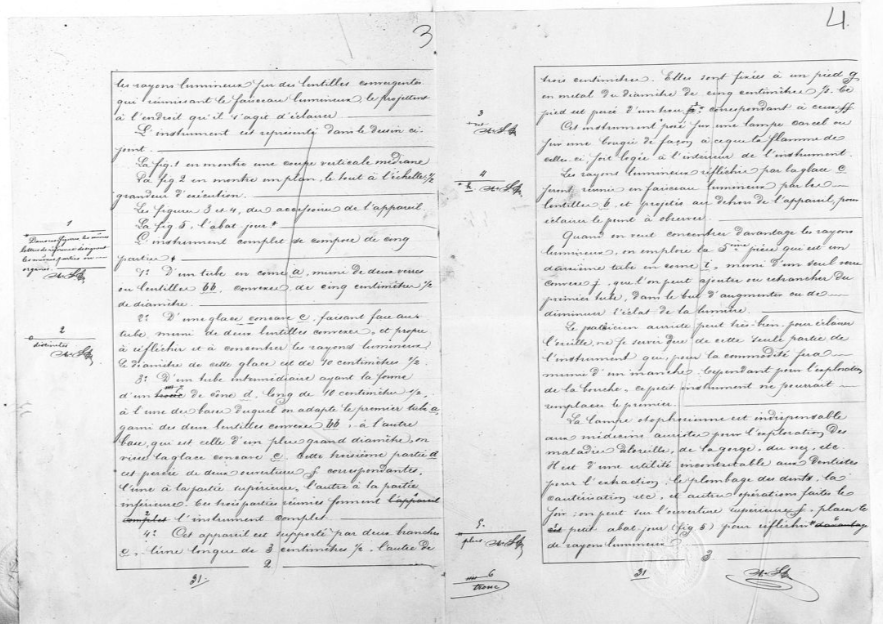 3
les rayons lumineux sur des lentilles convergentes
qui réunissant le faisceau lumineux le projettent
à l'endroit qu'il s'agit d'éclairer
L'instrument est représenté dans le dessin ci-
joint.
La fig. 1 en montre une coupe verticale médiane
La fig 2 en montre un plan, le tout à l'échelle 1/2
grandeur d'exécution.
Les figures 3 et 4, des accessoires de l'appareil.
La fig 5. l'abat jour +
L'instrument complet se compose de cinq
parties +
1° D'un tube en corne a, muni de deux verres
ou lentilles bb, convexes de cinq centimètres 1/2
de diamètre.
2° D'une glace concave c, faisant face au
tube, muni de deux lentilles convexes, et propre
à réfléchir et à concentrer les rayons lumineux
le diamètre de cette glace est de 10 centimètres 1/2.
3° D'un tube intermédiaire ayant la forme
d'un tronc de cône d, long de 10 centimètres 1/2,
à l'une des bases duquel on adapte le premier tube a,
garni des deux lentilles convexes bb, à l'autre
base, qui est celle d'un plus grand diamètre, on
visse la glace concave c. Cette troisième partie d
est percée de deux ouvertures f correspondantes,
l'une à la partie supérieure, l'autre à la partie
inférieure. Ces trois parties réunies forment l'appareil
complet l'instrument complet
4° Cet appareil est supporté par deux branches
e, l'une longue de 3 centimètres 1/2, l'autre de
2
31.
1
Dans ces figures les mêmes
lettres de référence désignent
les mêmes parties ou
organes
2
distinctes
4.
trois centimètres. Elles sont fixées à un pied g
en métal du diamètre de cinq centimètres 1/2. Ce
pied est percé d'un trou correspondant à ceux ff
Cet instrument posé sur une lampe carcel ou
sur une bougie de façon à ce que la flamme de
celles-ci soit logée à l'intérieur de l'instrument.
Les rayons lumineux réfléchis par la glace c
seront réunis en faisceau lumineux par les
lentilles b, et projetés au dehors de l'appareil, pour
éclairer le point à observer.
Quand on veut concentrer davantage les rayons
lumineux, on emploie la 5ème pièce qui est un
deuxième tube en corne i, muni d'un seul verre
convexe j, que l'on peut ajouter ou retrancher du
premier tube, dans le but d'augmenter ou de
diminuer l'éclat de la lumière.
Le praticien auriste peut très-bien, pour éclairer
l'oreille, ne se servir que de cette seule partie de
l'instrument qui, pour la commodité sera
munie d'un manche. Cependant pour l'exploration
de la bouche, ce petit instrument ne pourrait
remplacer le premier.
La lampe otopharinienne est indispensable
aux médecins auristes pour l'exploration des
maladies d'oreille, de la gorge, du nez, etc.
Il est d'une utilité incontestable aux Dentistes
pour l'extraction, le plombage des dents, la
cautérisation etc, et autres opérations faites le
soir, on peut sur l'ouverture supérieure f, placer le
petit abat-jour (fig 5) pour réfléchir davantage
de rayons lumineux
3
31
3
4
5.
plus
6
tronc